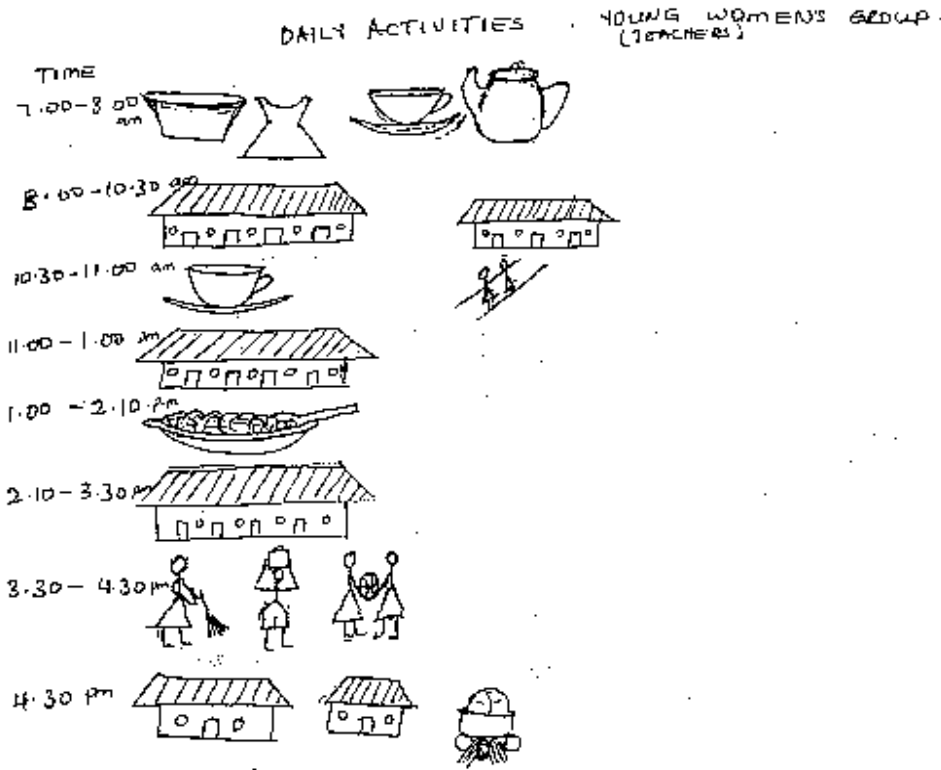 DAILY ACTIVITIES . YOUNG WOMEN'S GROUP.
(TEACHERS)
TIME
7.00-8.00
am
8.00-10.30 am
10.30-11.00 am
11.00-1.00 pm
1.00-2.10 pm
2.10-3.30 pm
3.30-4.30 pm
4.30 pm